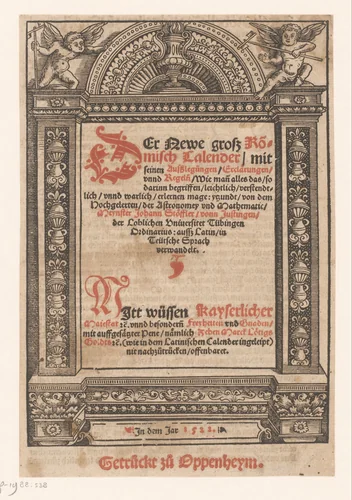 DEr Newe groß Rö-
misch Calender/ mit
seinen Außlegungen/ Erclärungen/
vnnd Regeln/ Wie mañ alles das/ so
darinn begriffen/ leichtlich/ verstende-
lich/ vnnd warlich/ erlernen mage: yzunde/ von dem
Hochgelerten/ der Astronomey vnd Mathematic/
Meyster Johann Stöffler/ vonn Justingen/
der Loblichen Vniuersitet Tübingen
Ordinarius: auß Latin/ in
Teütsche Sprach
verwandelt.
MItt wüssen Kayserlicher
Maiestat ꝛc. vnnd besondern Freyheiten vnd Gnaden/
mit auffgesätzter Pene/ nämlich Zehen Marck Lötigs
Golds ꝛc. (wie in dem Latinischen Calender ingeleipt)
nit nachzütrücken/ offenbaret.
In dem Jar 1522.
Getrückt zü Oppenheym.